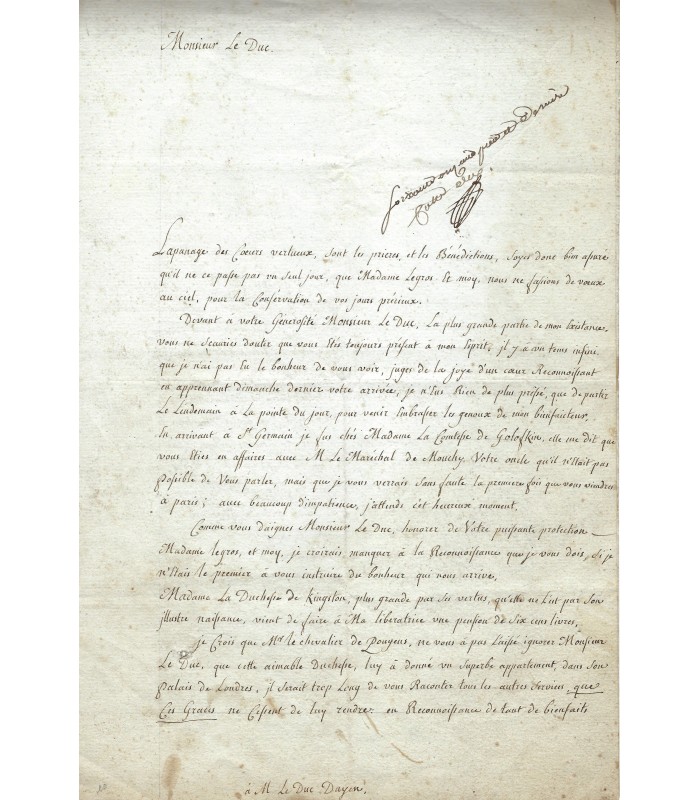 Monsieur Le Duc.
Lapanage des Coeurs vertueux, sont les prieres, et les Bénédictions, Soyes donc bien assuré
qu'il ne ce passe pas un seul jour, que Madame Legros et moy, nous ne fassions de voeux
au ciel, pour la Conservation de vos jours précieux.
Devant à votre Générosité Monsieur Le Duc, La plus grande partie de mon Existance,
vous ne Scauriés douter que vous Etés toujours présent à mon Esprit; il y à un tems infini
que je n'ai pas Eu le bonheur de vous voir, juges de la joye d'un coeur Reconnoissant
en apprennant dimanche dernier votre arrivée, je n'Eus Rien de plus préssé, que de partir
Le Lendemain à La pointe du jour, pour venir Embrasser les genoux de mon bienfaicteur.
En arrivant à St Germain je fus chés Madame La Comtesse de Golofkin, elle me dit que
vous Etiés en affaires avec M Le Maréchal de Mouchy, Votre oncle qu'il n'Etait pas
possible de Vous parler, mais que je vous verrais Sans faute la premiere fois que vous viendres
à paris; avec beaucoup d'impatience, j'attends cet heureux moment,
Comme vous daignes Monsieur Le Duc, honorer de Votre puissante protection
Madame legros, et moy, je croirais, manquer à la Reconnoissance que je vous dois, Si je
n'Etais le premier à vous instruire du bonheur qui nous arrive.
Madame La Duchesse de Kingston, plus grande par Ses vertus, qu'elle ne L'est par Son
illustre naissance, vient de faire à Ma libératrice une pension de Six cens livres.
je Crois que Mr le chevalier de Pougens, ne vous à pas Laissé ignorer Monsieur
Le Duc, que cette aimable Duchesse, luy à donné un Superbe appartement, dans Son
palais de Londres, il Serait trop Long de vous Raconter tous les autres Services, que
Ces Graces ne Cessent de luy rendre: en Reconnoissance de tant de bienfaits
à M Le Duc Dayen.